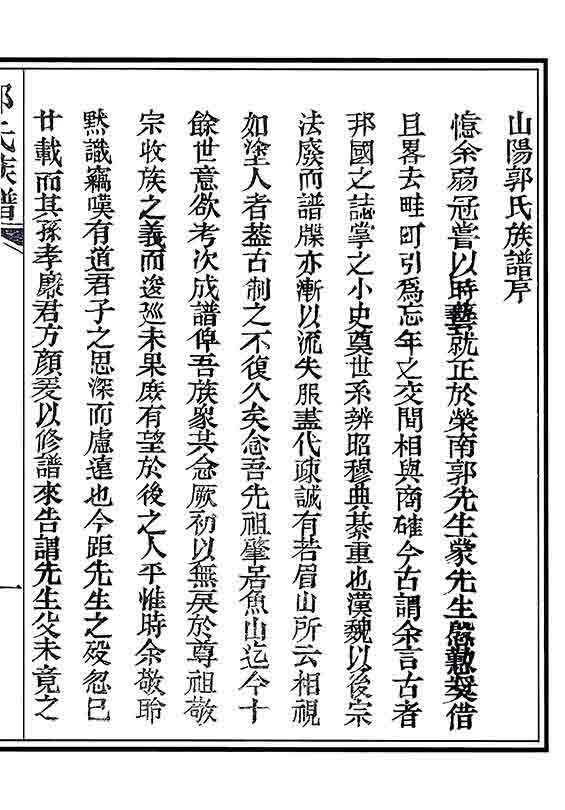 山陽郭氏族譜序
憶余弱冠嘗以時藝就正於榮南郭先生蒙先生慇懃奬借
且畧去畦町引爲忘年之交間相與商確今古謂余言古者
邦國之誌掌之小史奠世系辨昭穆典綦重也漢魏以後宗
法廢而譜牒亦漸以流失服盡代疎誠有若眉山所云相視
如塗人者葢古制之不復久矣念吾先祖肇居魚山迄今十
餘世意欲考次成譜俾吾族衆共念厥初以無戾於尊祖敬
宗收族之義而逡巡未果庶有望於後之人乎惟時余敬聆
默識竊嘆有道君子之思深而慮遠也今距先生之歿忽已
廿載而其孫孝廉君方顔爰以修譜來告謂先生父未竟之
郭氏族譜
一